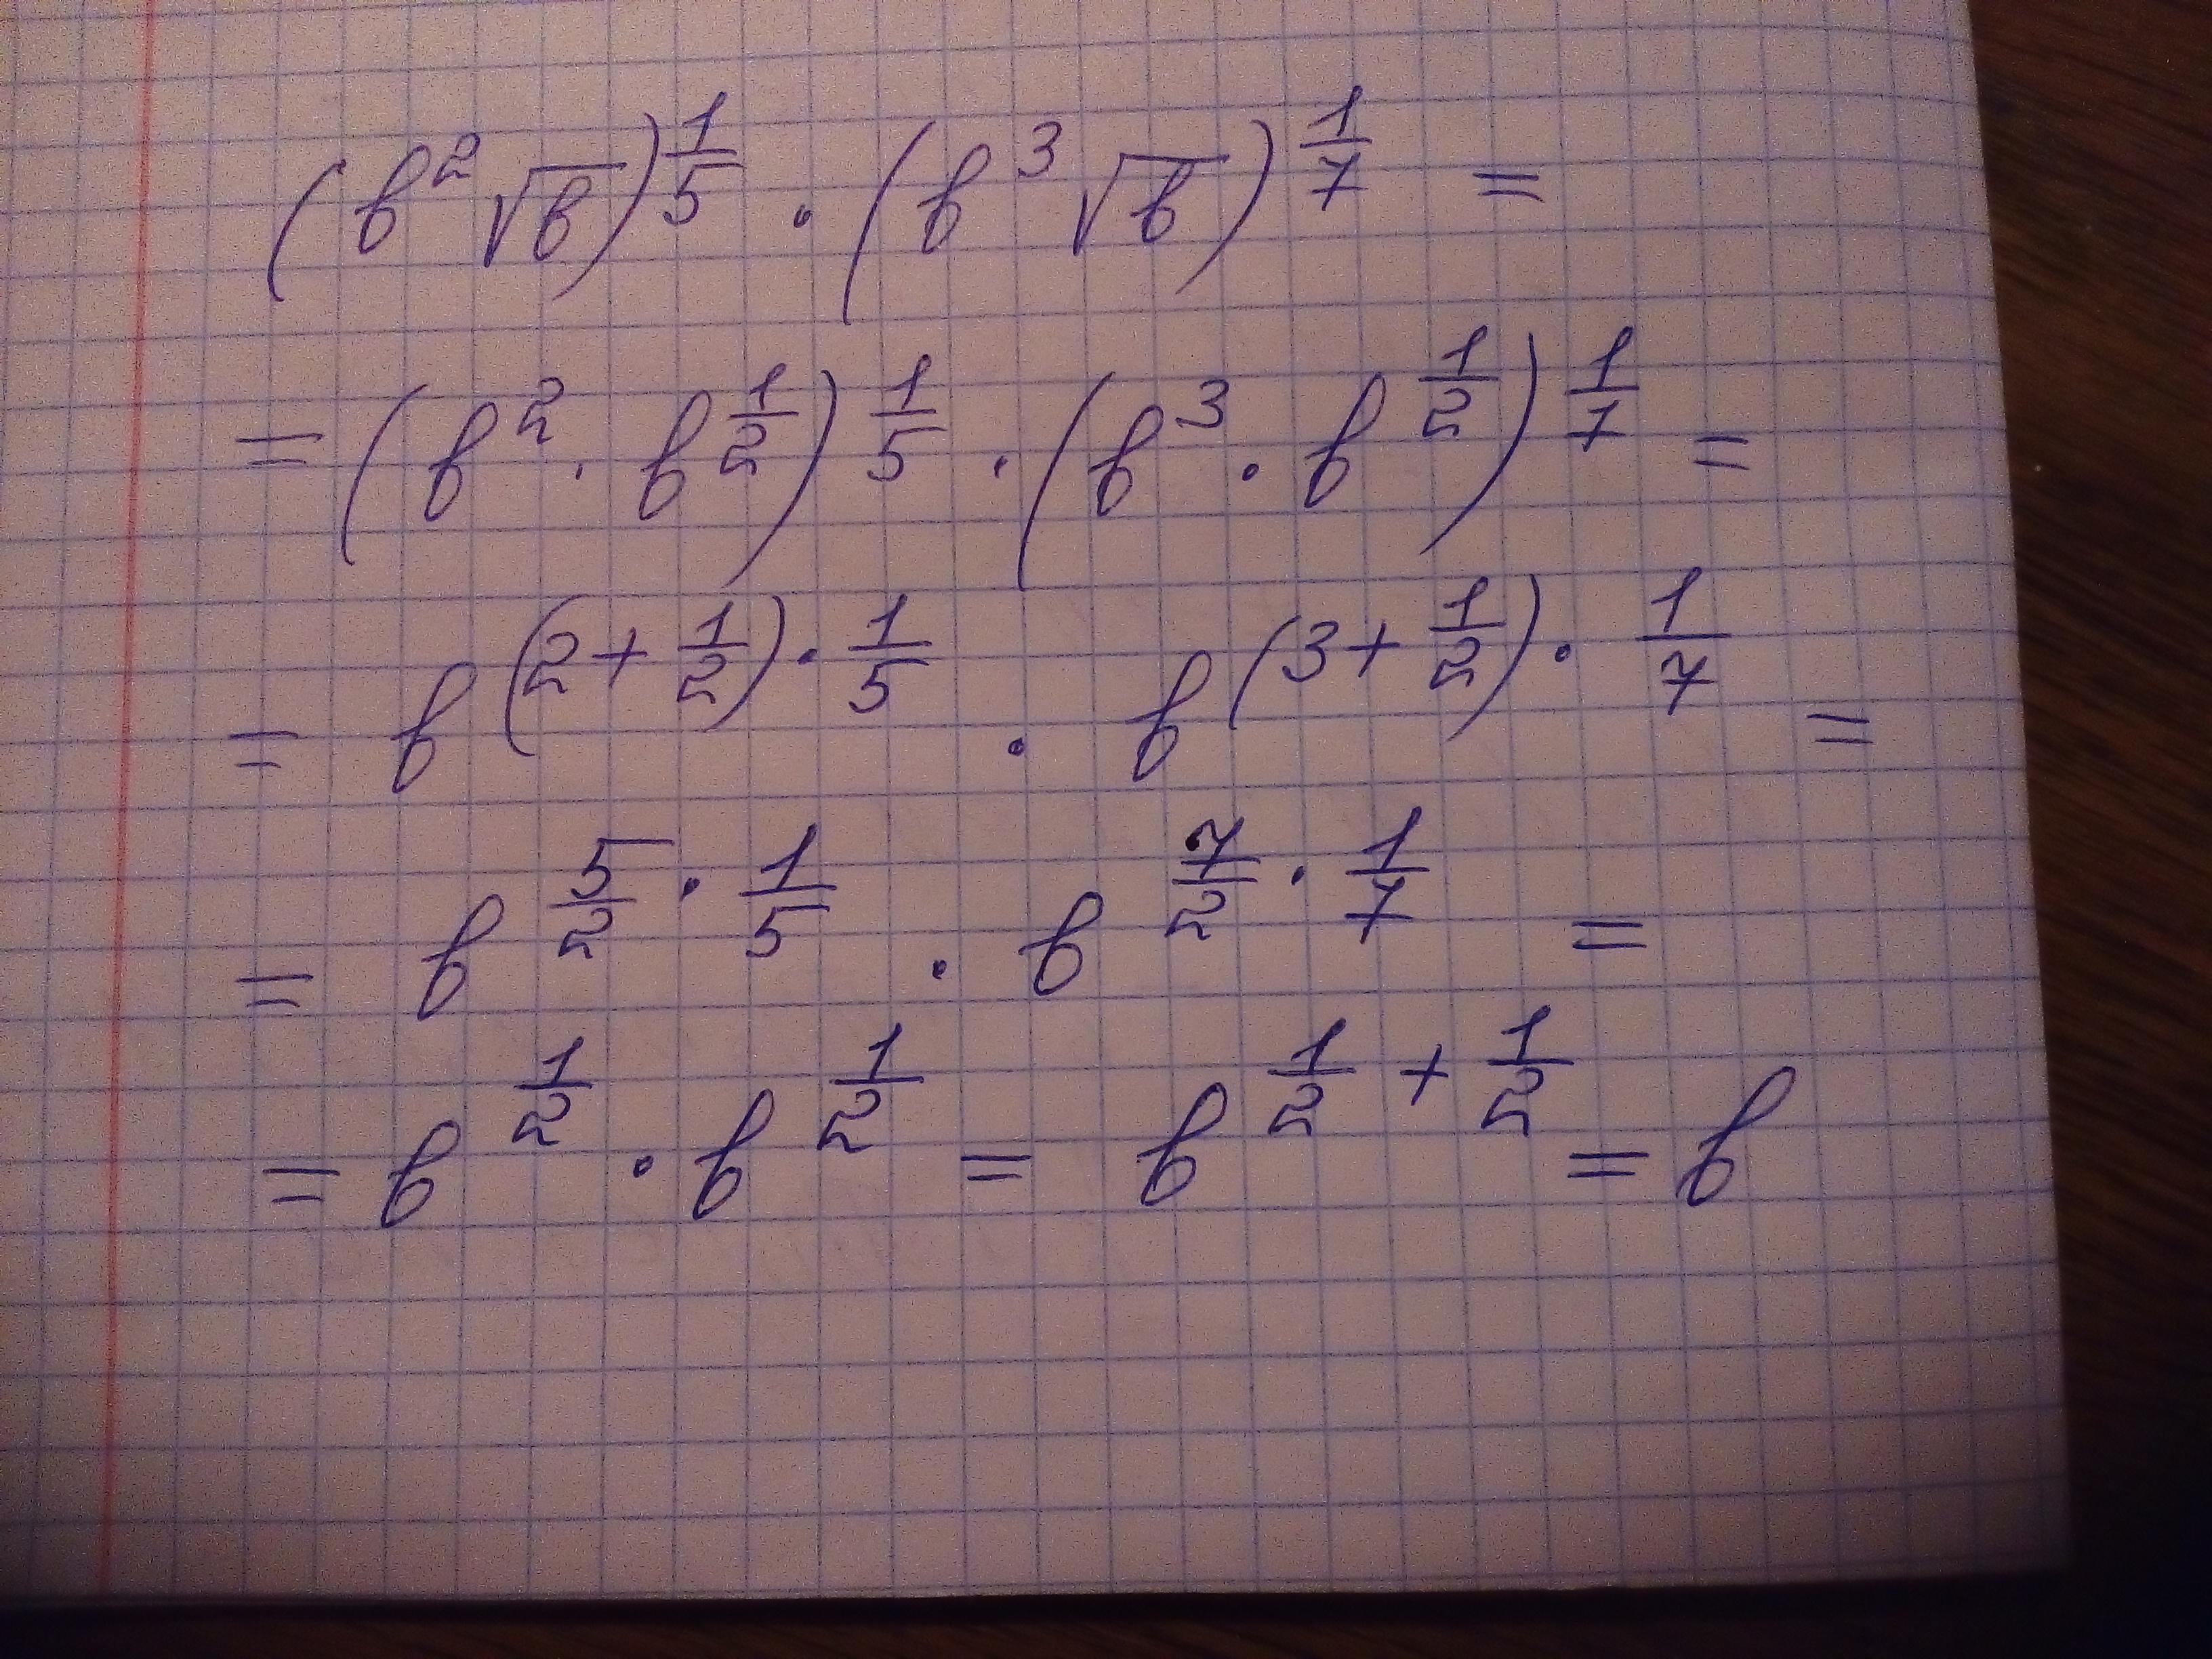 (b²√b)^(1/5) · (b³√b)^(1/7) =
= (b² · b^(1/2))^(1/5) · (b³ · b^(1/2))^(1/7) =
= b^((2+1/2)·1/5) · b^((3+1/2)·1/7) =
= b^(5/2·1/5) · b^(7/2·1/7) =
= b^(1/2) · b^(1/2) = b^(1/2+1/2) = b